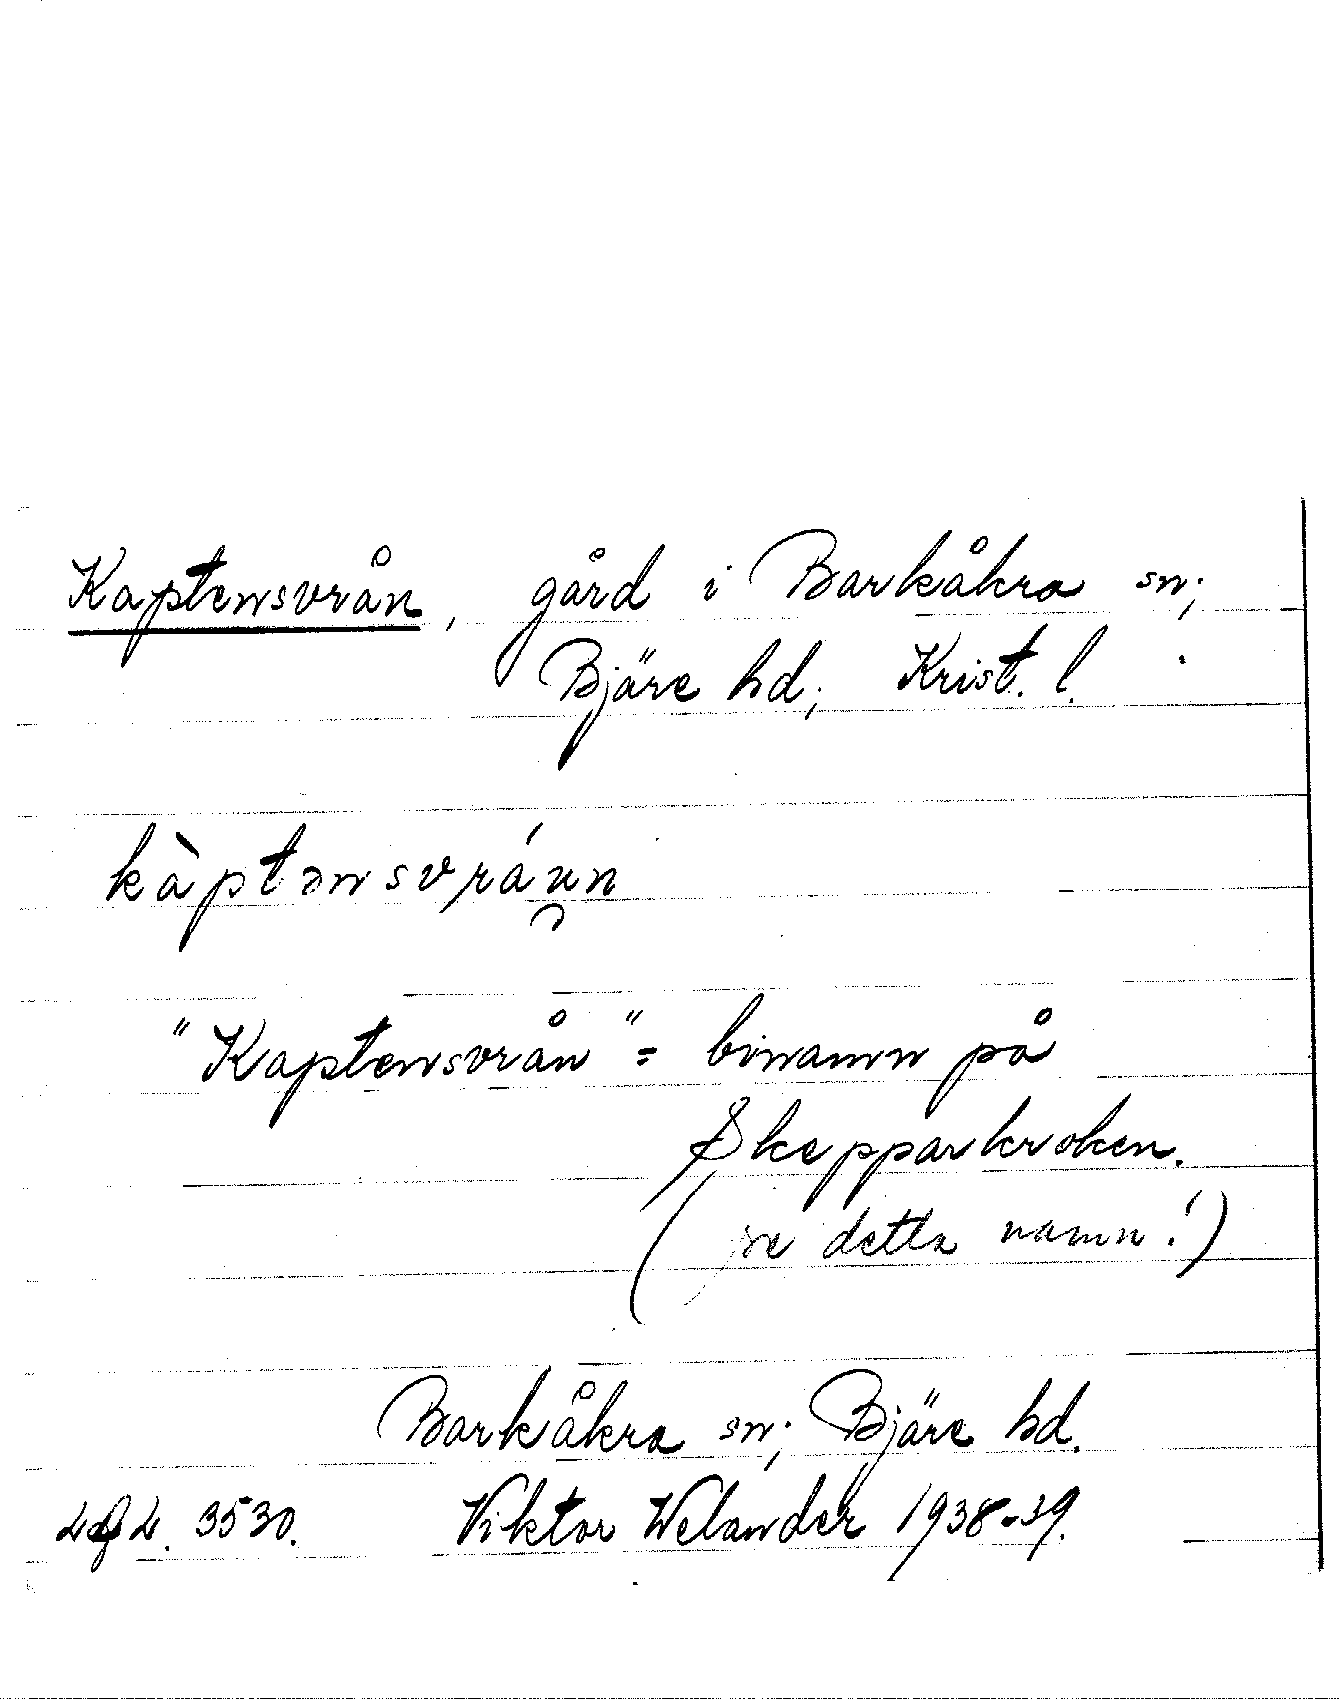 Kaptensvrån, gård i Barkåkra sn;
Bjäre hd; Krist. l.
kàptənsvráu̯n
"Kaptensvrån" = binamn på
Skepparkroken.
(se detta namn!)
Barkåkra sn; Bjäre hd.
3530. Viktor Welander 1938-39.